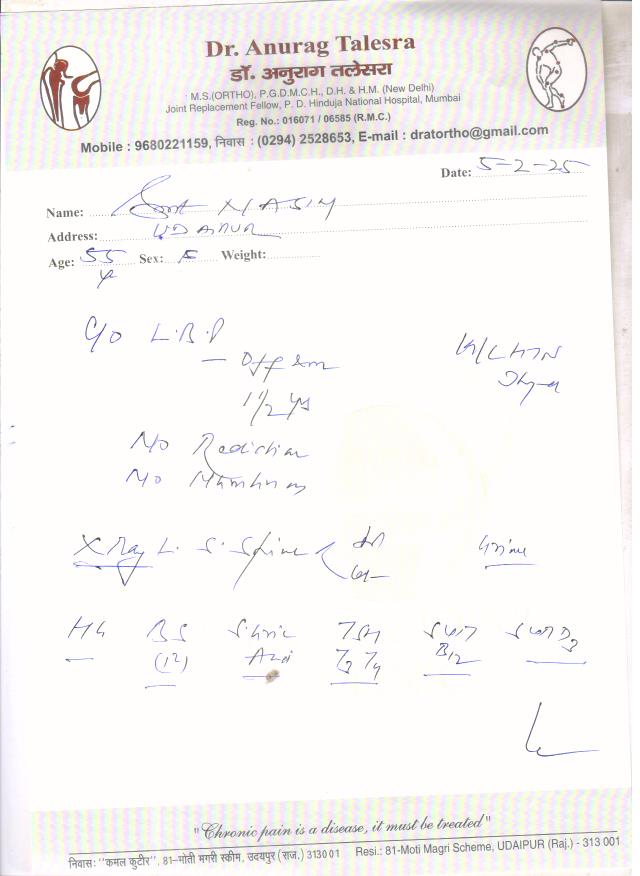 Dr. Anurag Talesra
डॉ. अनुराग तलेसरा
M.S.(ORTHO), P.G.D.M.C.H., D.H. & H.M. (New Delhi)
Joint Replacement Fellow, P. D. Hinduja National Hospital, Mumbai
Reg. No.: 016071 / 06585 (R.M.C.)
Mobile : 9680221159, निवास : (0294) 2528653, E-mail : dratortho@gmail.com
Date: 5-2-25
Name: NASIM
Address: UDAIPUR
Age: 55 yr Sex: F Weight:
C/O L.B.P K/C HTN
- Off & on
1 1/2 yrs
No Radiction
No
X Ray L. S. Spine AP Urine
Lat
Hb BS S. Uric TSH S Vit S Vit D3
(12) Acid T3 T4 B12
"Chronic pain is a disease, it must be treated"
निवास: "कमल कुटीर", 81-मोती मगरी स्कीम, उदयपुर (राज.) 313001 Resi.: 81-Moti Magri Scheme, UDAIPUR (Raj.) - 313 001